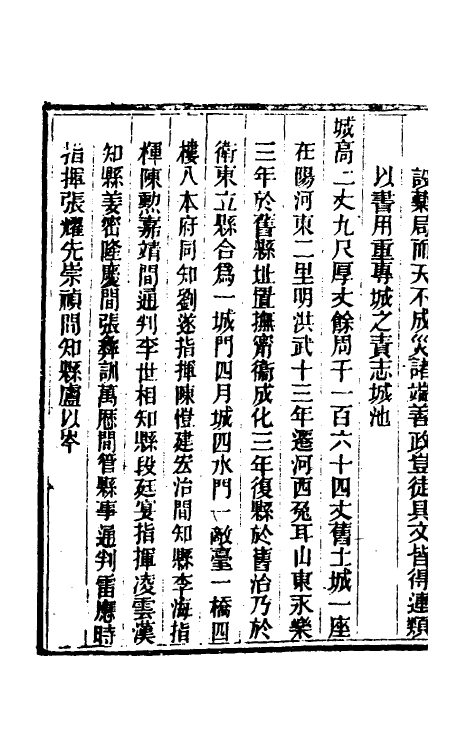 設藥局而天不成災諸端善政豈徒具文皆得連類
以書用重專城之責志城池
城高二丈九尺厚丈餘周千一百六十四丈舊土城一座
在陽河東二里明洪武十三年遷河西兔耳山東永樂
三年於舊縣址置撫甯衞成化三年復縣於舊治乃於
衛東立縣合爲一城門四月城四水門一敵臺一橋四
樓八本府同知劉遂指揮陳愷建宏治間知縣李海指
揮陳勲嘉靖間通判李世相知縣段廷宴指揮凌雲漢
知縣姜密隆慶間張彝訓萬歷間管縣事通判雷應時
指揮張耀先崇禎間知縣盧以岑